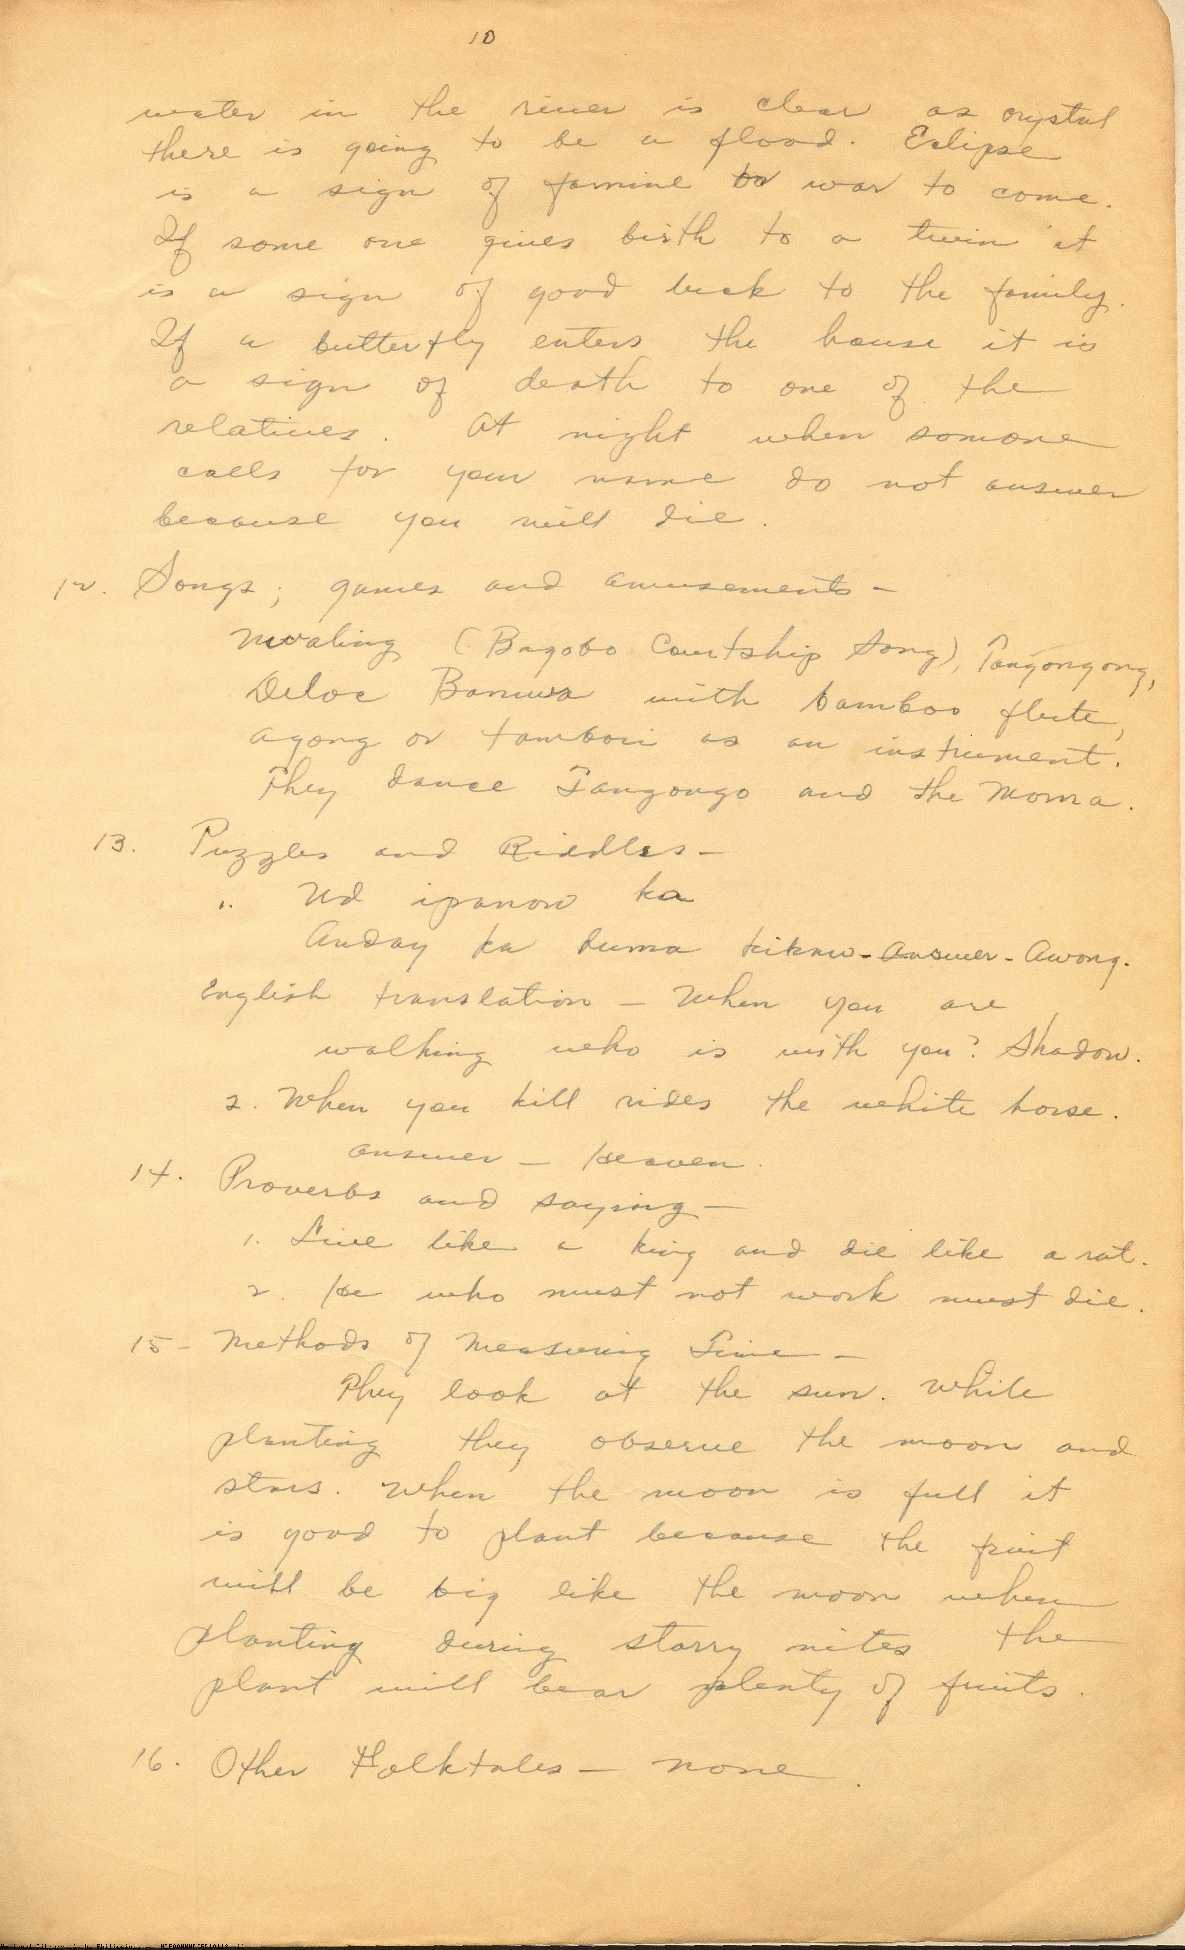 10
water in the river is clear as crystal
there is going to be a flood. Eclipse
is a sign of famine or war to come.
If some one gives birth to a twin it
is a sign of good luck to the family.
If a butterfly enters the house it is
a sign of death to one of the
relatives. At night when somone
calls for your name do not answer
because you will die.
12. Songs; games and amusements -
(Bagobo Courtship Song), Tangongong,
Deloc Banuwa with bamboo flute,
agong or tambori as an instrument.
They dance Tangongo and the Moma.
13. Puzzles and Riddles -
1. Ud ipanow ka
Anday ka duma kikaw - Answer - Awong.
English translation - When you are
walking who is with you? Shadow.
2. When you kill rides the white horse.
answer - Heaven.
14. Proverbs and saying -
1. Live like a king and die like a rat.
2. He who must not work must die.
15 - Methods of Measuring Time -
They look at the sun. While
planting they observe the moon and
stars. When the moon is full it
is good to plant because the fruit
will be big like the moon when
planting during starry nites the
plant will bear plenty of fruits.
16. Other Folktales - none.